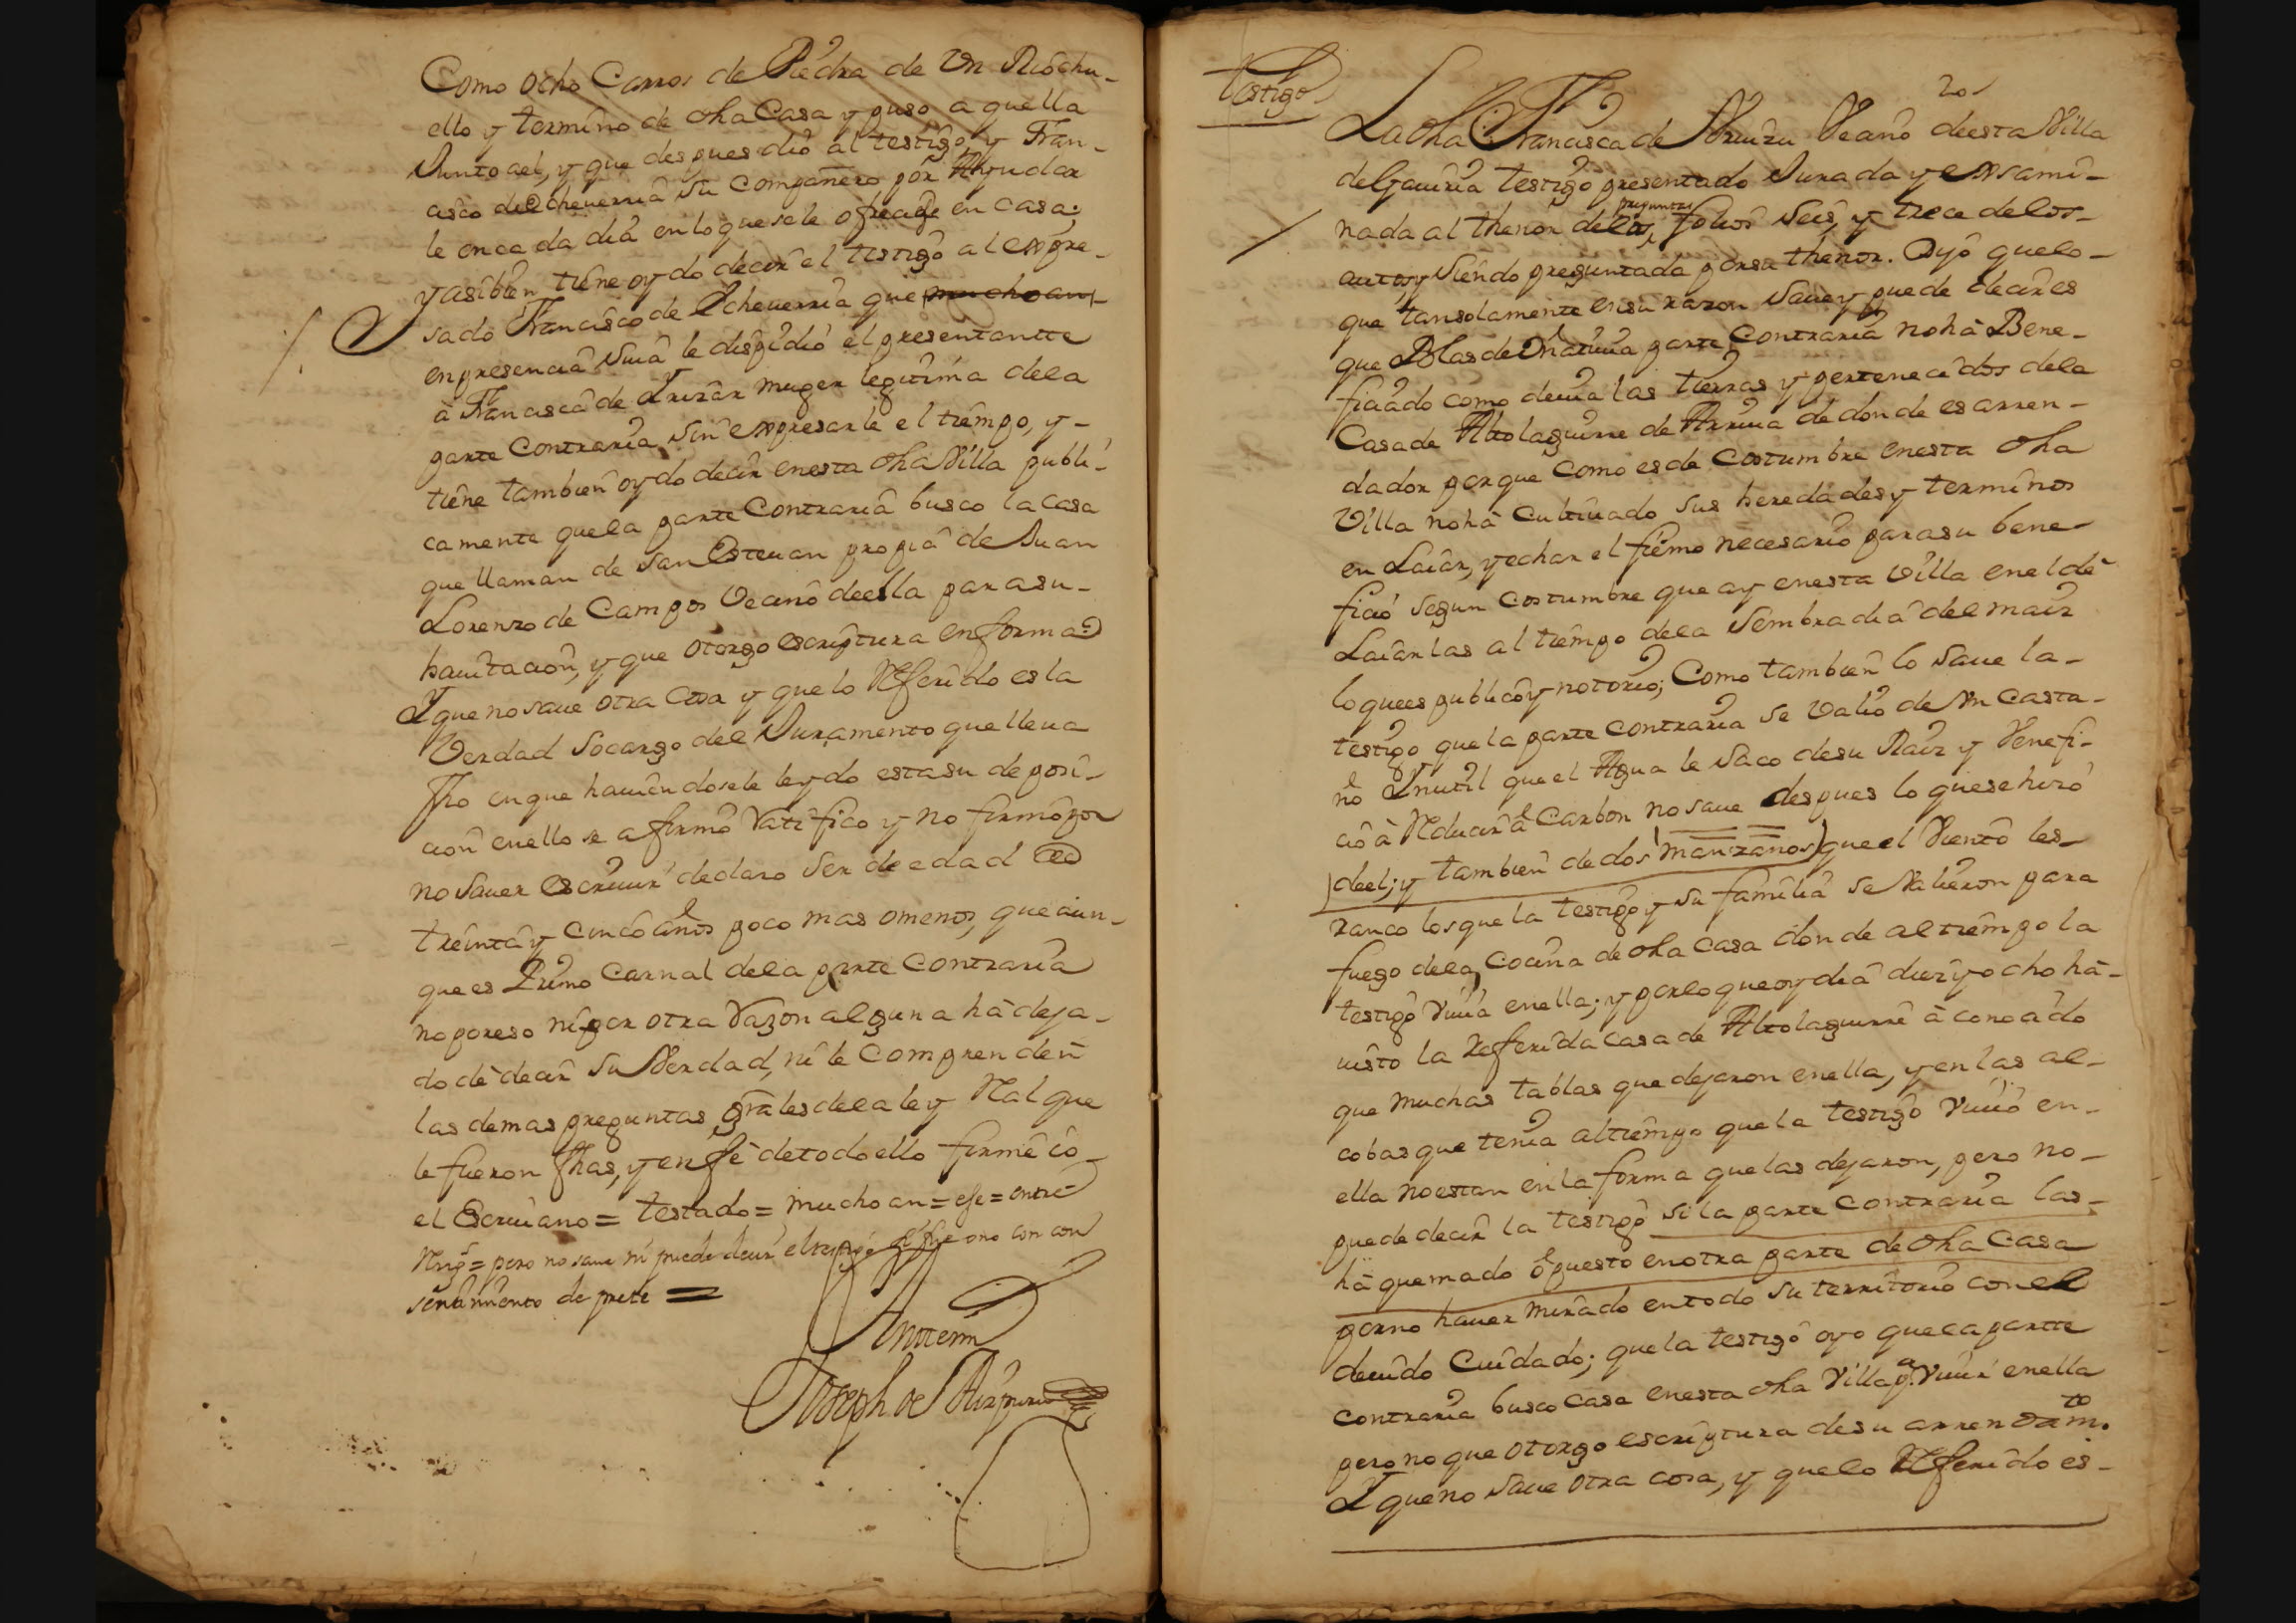 Como ocho Carros de Piedra de Vn Riochu-
ello y termino de dha Casa y puso aquella
Junto ael, y que despues dio al testigo y Fran-
cisco de Echeuerria su Compañero por Ayudar
le en cada dia en lo que se le ofreçia en casa;
y asibien tiene oydo decir el testigo al expre-
sado Francisco de Echeuerria que mucho an-
en presencia suia le dispidio el presentantte
à Francisca de muger legitima dela
parte Contraria, sin expresarle el tiempo, y-
tiene tambien oydo decir enesta dha Villa publi-
camente quela parte Contraria busco la casa
que llaman de San Esteuan propia de Juan
Lorenzo de Campos Vecino deella para su-
hauitacion, y que otorgo escriptura en forma
Y que no saue otra Cosa y que lo Referido es la
Verdad socargo del Juramento que lleua
fho en que hauiendosele leydo esta su deposi-
cion enello se afirmo Ratifico y no firmo por
no sauer escriuir declaro ser de edad de
treinta y cinco años poco mas omenos, que aun-
que es Primo Carnal dela parte Contraria
no poreso ni por otra Razon alguna hà deja-
do dè decir su Verdad, ni le Comprenden
las demas preguntas grãles dela ley Real que
le fueron fhas, y en fè detodo ello firmè io
el Escriuano = testado = mucho an = ese = entre
Rengs = pero no saue ni puede decir el testigo si fue ono con con
sentimiento de prete =
Anttemi
Joseph de Aizpuru
Testigo
20
La dha Francisca de Vecino deesta Villa
de testigo presentado Jurada y exsami-
preguntas
nada al thenor delas, folios seis, y trece delos-
autos, y siendo preguntada por su thenor. Dijo quelo-
que tansolamente en su razon saue y puede decir es
que Blas de parte Contraria no hà Bene-
ficiado como deuia las tierras y pertenecidos dela
Casa de Altolaguirre de Arriua de donde es arren-
dador porque como es de Costumbre enesta dha
Villa no hà Cultiuado sus heredades y terminos
en Laiar, y echar el fiemo necesario para su bene-
ficio segun costumbre que ay enesta Villa en el de
Laiarlas al tiempo dela sembradia del maiz
lo quees publico y notorio; Como tambien lo saue la-
testigo que la parte contraria se valio de Vn Casta-
ño Ynutil que el Agua le saco desu Raiz y Venefi-
ciò à Reducir à Carbon no saue despues lo que se hizo
deel; y tambien de dos manzanos que el Viento les-
ranco los que la testigo y su familia se Valieron para
fuego dela Cocina de dha Casa donde al tiempo la
testigo Viuia enella; y por lo que oy dia diez y ocho hà-
uisto la referida casa de Altolaguirre à conocido
que muchas tablas que dejaron enella, y en las al-
cobas que tenia al tiempo que la testigo Viuio en-
ella no estan en la forma que las dejaron, pero no-
puede decir la testigo si la parte contraria las-
hà quemado ò puesto en otra parte de dha Casa
por no hauer mirado en todo su territorio con el
deuido Cuidado; que la testigo oyo quela partte
contraria busco Casa enesta dha Villa pª Viuir enella
pero no que otorgo escriptura desu arrendamto
Y que no saue otra cosa, y quelo Referido es-